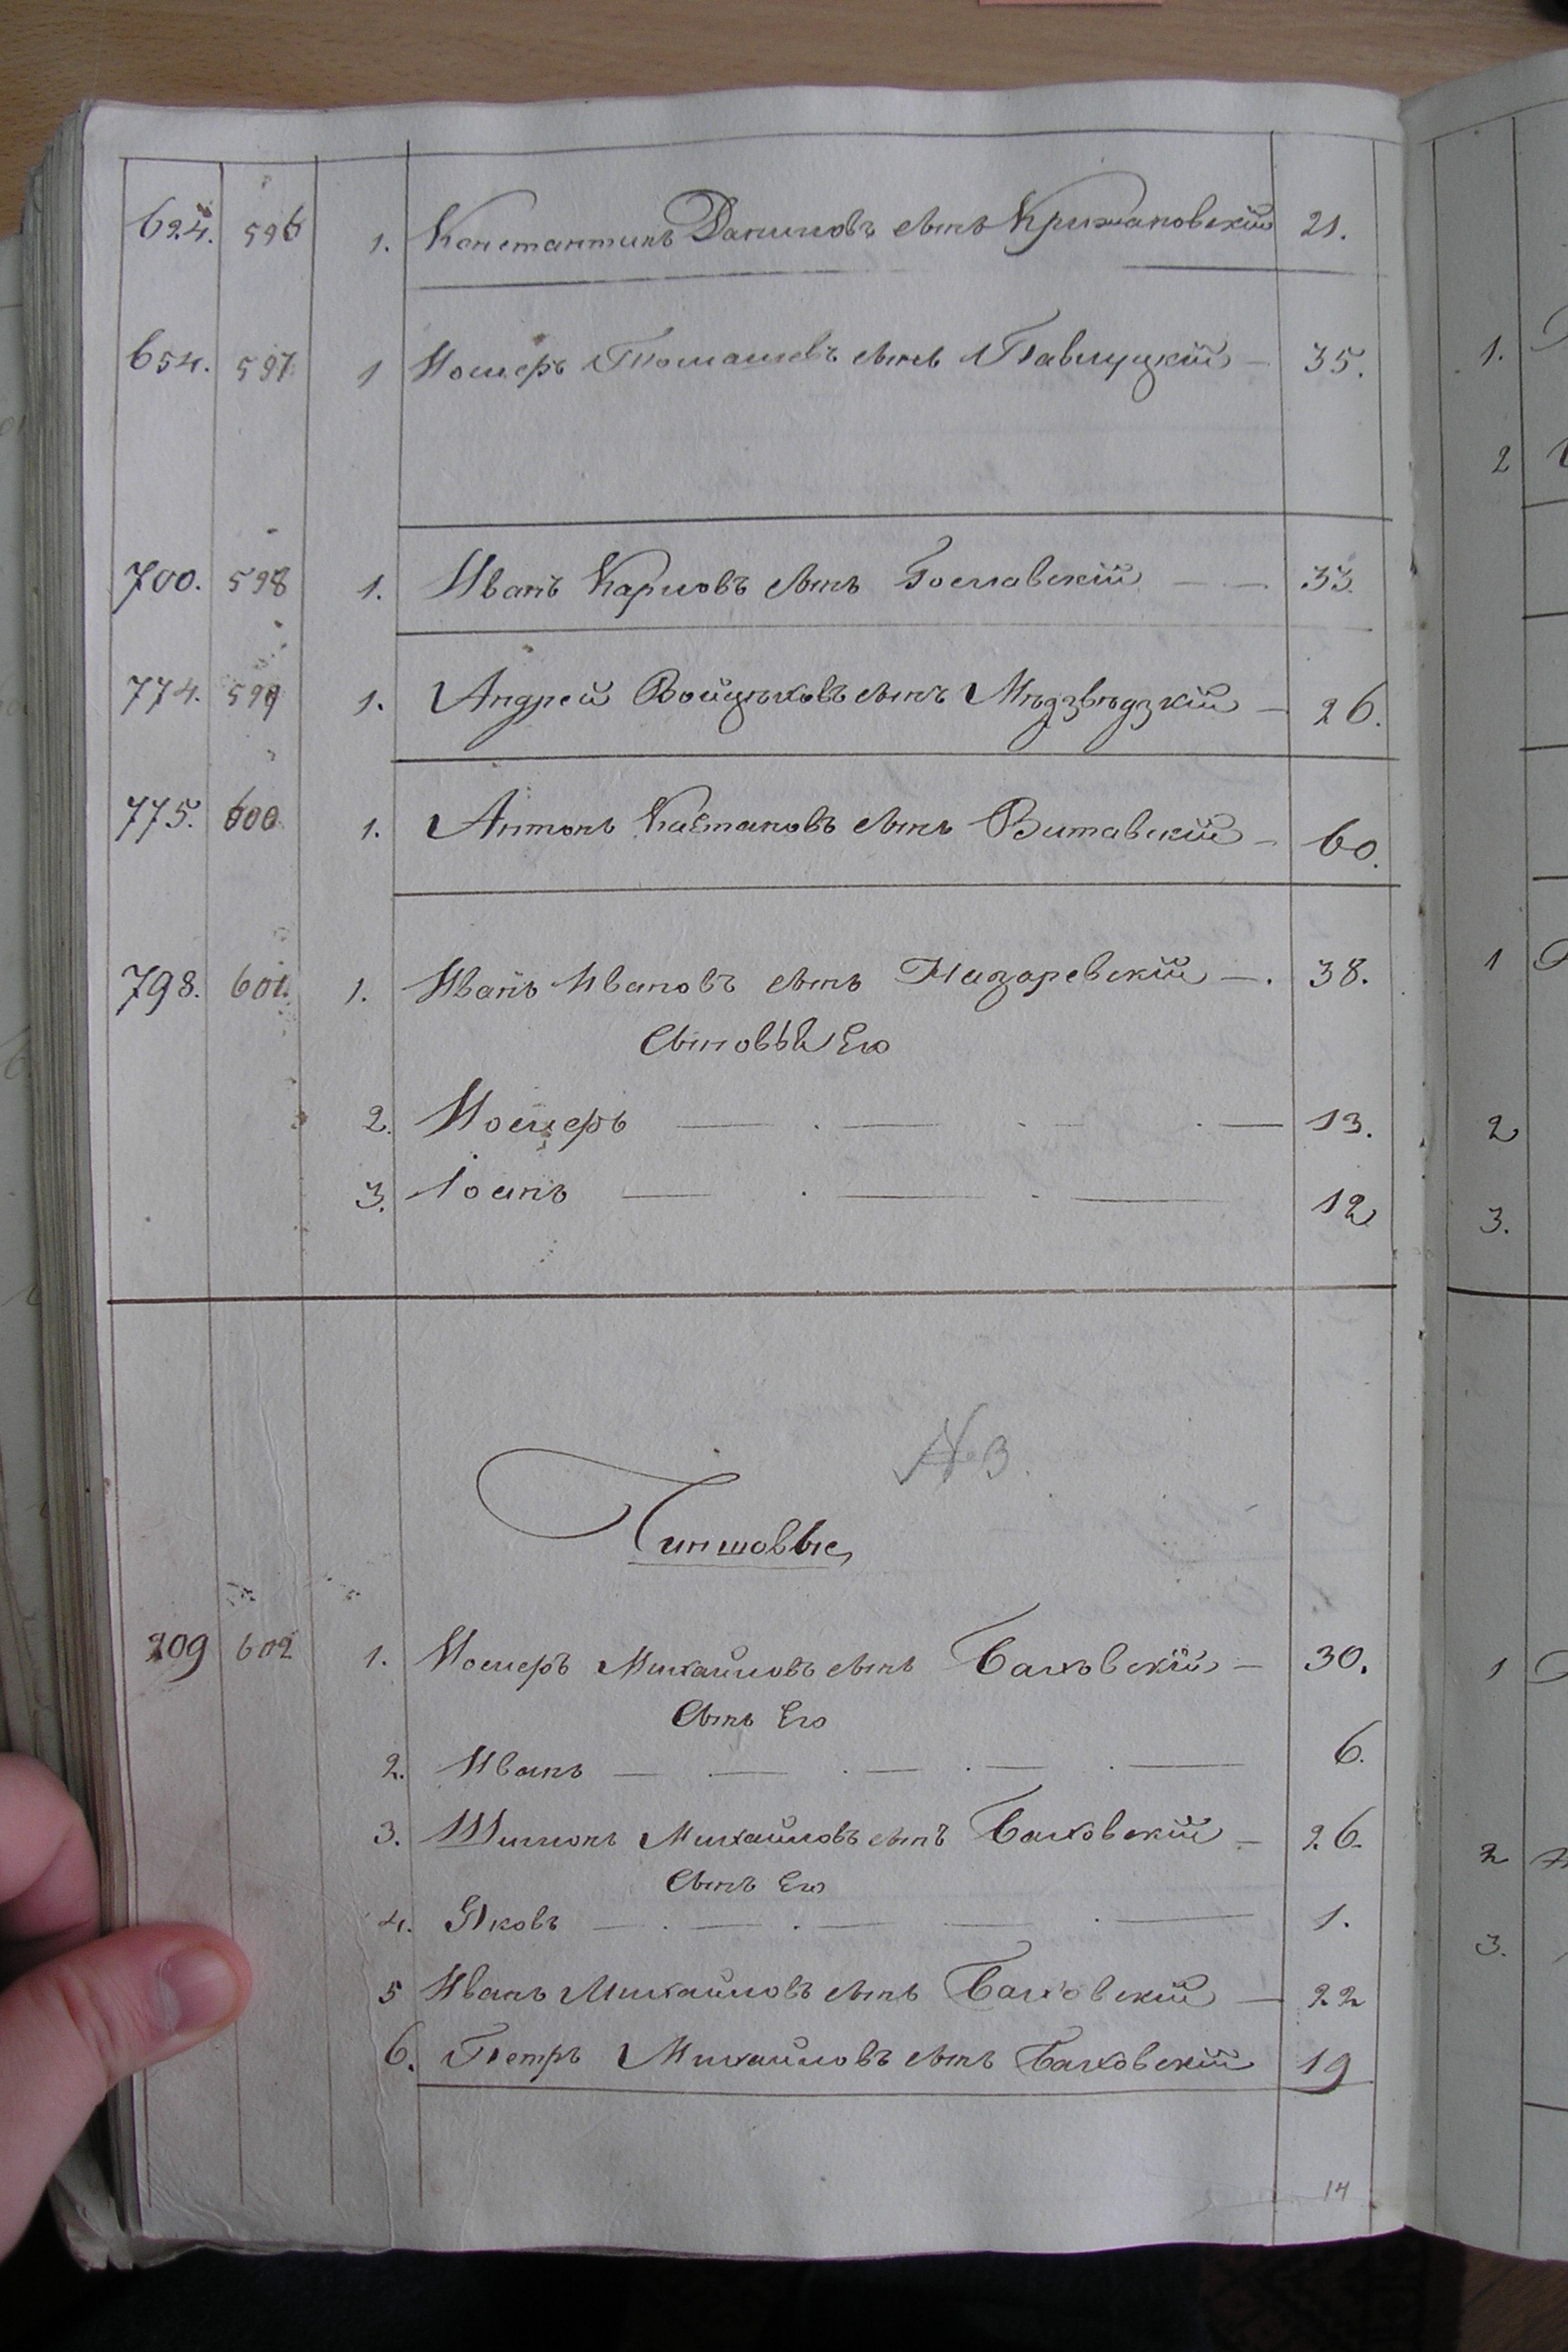 624. 596 1. Константинъ Даниловъ сынъ Крижановскій 21.
654. 597 1 Іосифъ Томашевъ сынъ Павлуцкій — 35.
700. 598 1. Иванъ Карловъ сынъ Гославскій — — 33.
774. 599 1. Андрей Войцѣховъ сынъ Мѣдзвѣдзкій — 26.
775. 600 1. Антонъ Каетановъ сынъ Витавскій — 60.
798. 601. 1. Иванъ Ивановъ сынъ Назаревскій — 38.
Сыновья Его
2. Іосифъ — — — 13.
3. Іоанъ — — — 12
№ 3.
Чиншовые
209 602 1. Іосифъ Михайловъ сынъ Балковскій — 30.
Сынъ Его
2. Иванъ — — — 6.
3. Шимонъ Михайловъ сынъ Балковскій — 26.
Сынъ Его
4. Яковъ — — — 1.
5 Иванъ Михайловъ сынъ Балковскій — 22
6. Петръ Михайловъ сынъ Балковскій 19
14
1.
2
1
2
3.
1
2
3.